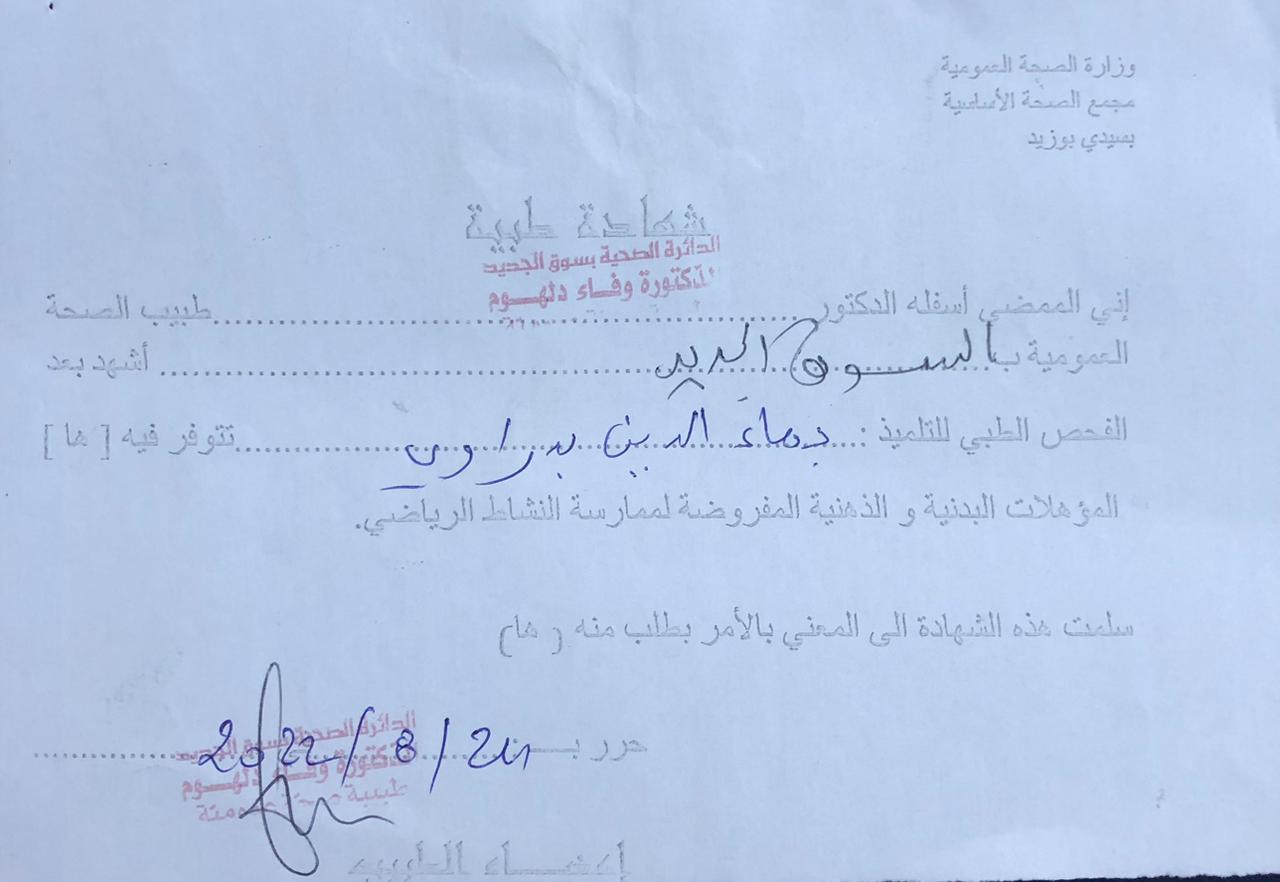 وزارة الصحة العمومية
مجمع الصحة الأساسية
بسيدي بوزيد
شهادة طبية
الدائرة الصحية بسوق الجديد
الدكتورة وفاء دلهوم
إني الممضي أسفله الدكتور ........................ طبيب الصحة
العمومية بالسوق الجديد ........................ أشهد بعد
الفحص الطبي للتلميذ : بهاء الدين بدراوي ........................ تتوفر فيه [ ها ]
المؤهلات البدنية و الذهنية المفروضة لممارسة النشاط الرياضي.
سلمت هذه الشهادة الى المعني بالأمر بطلب منه ( ها)
حرر بـ 2022/8/ ........................
الدائرة الصحية بسوق الجديد
الدكتورة وفاء دلهوم
طبيبة صحة عمومية
إمضاء الطبيب